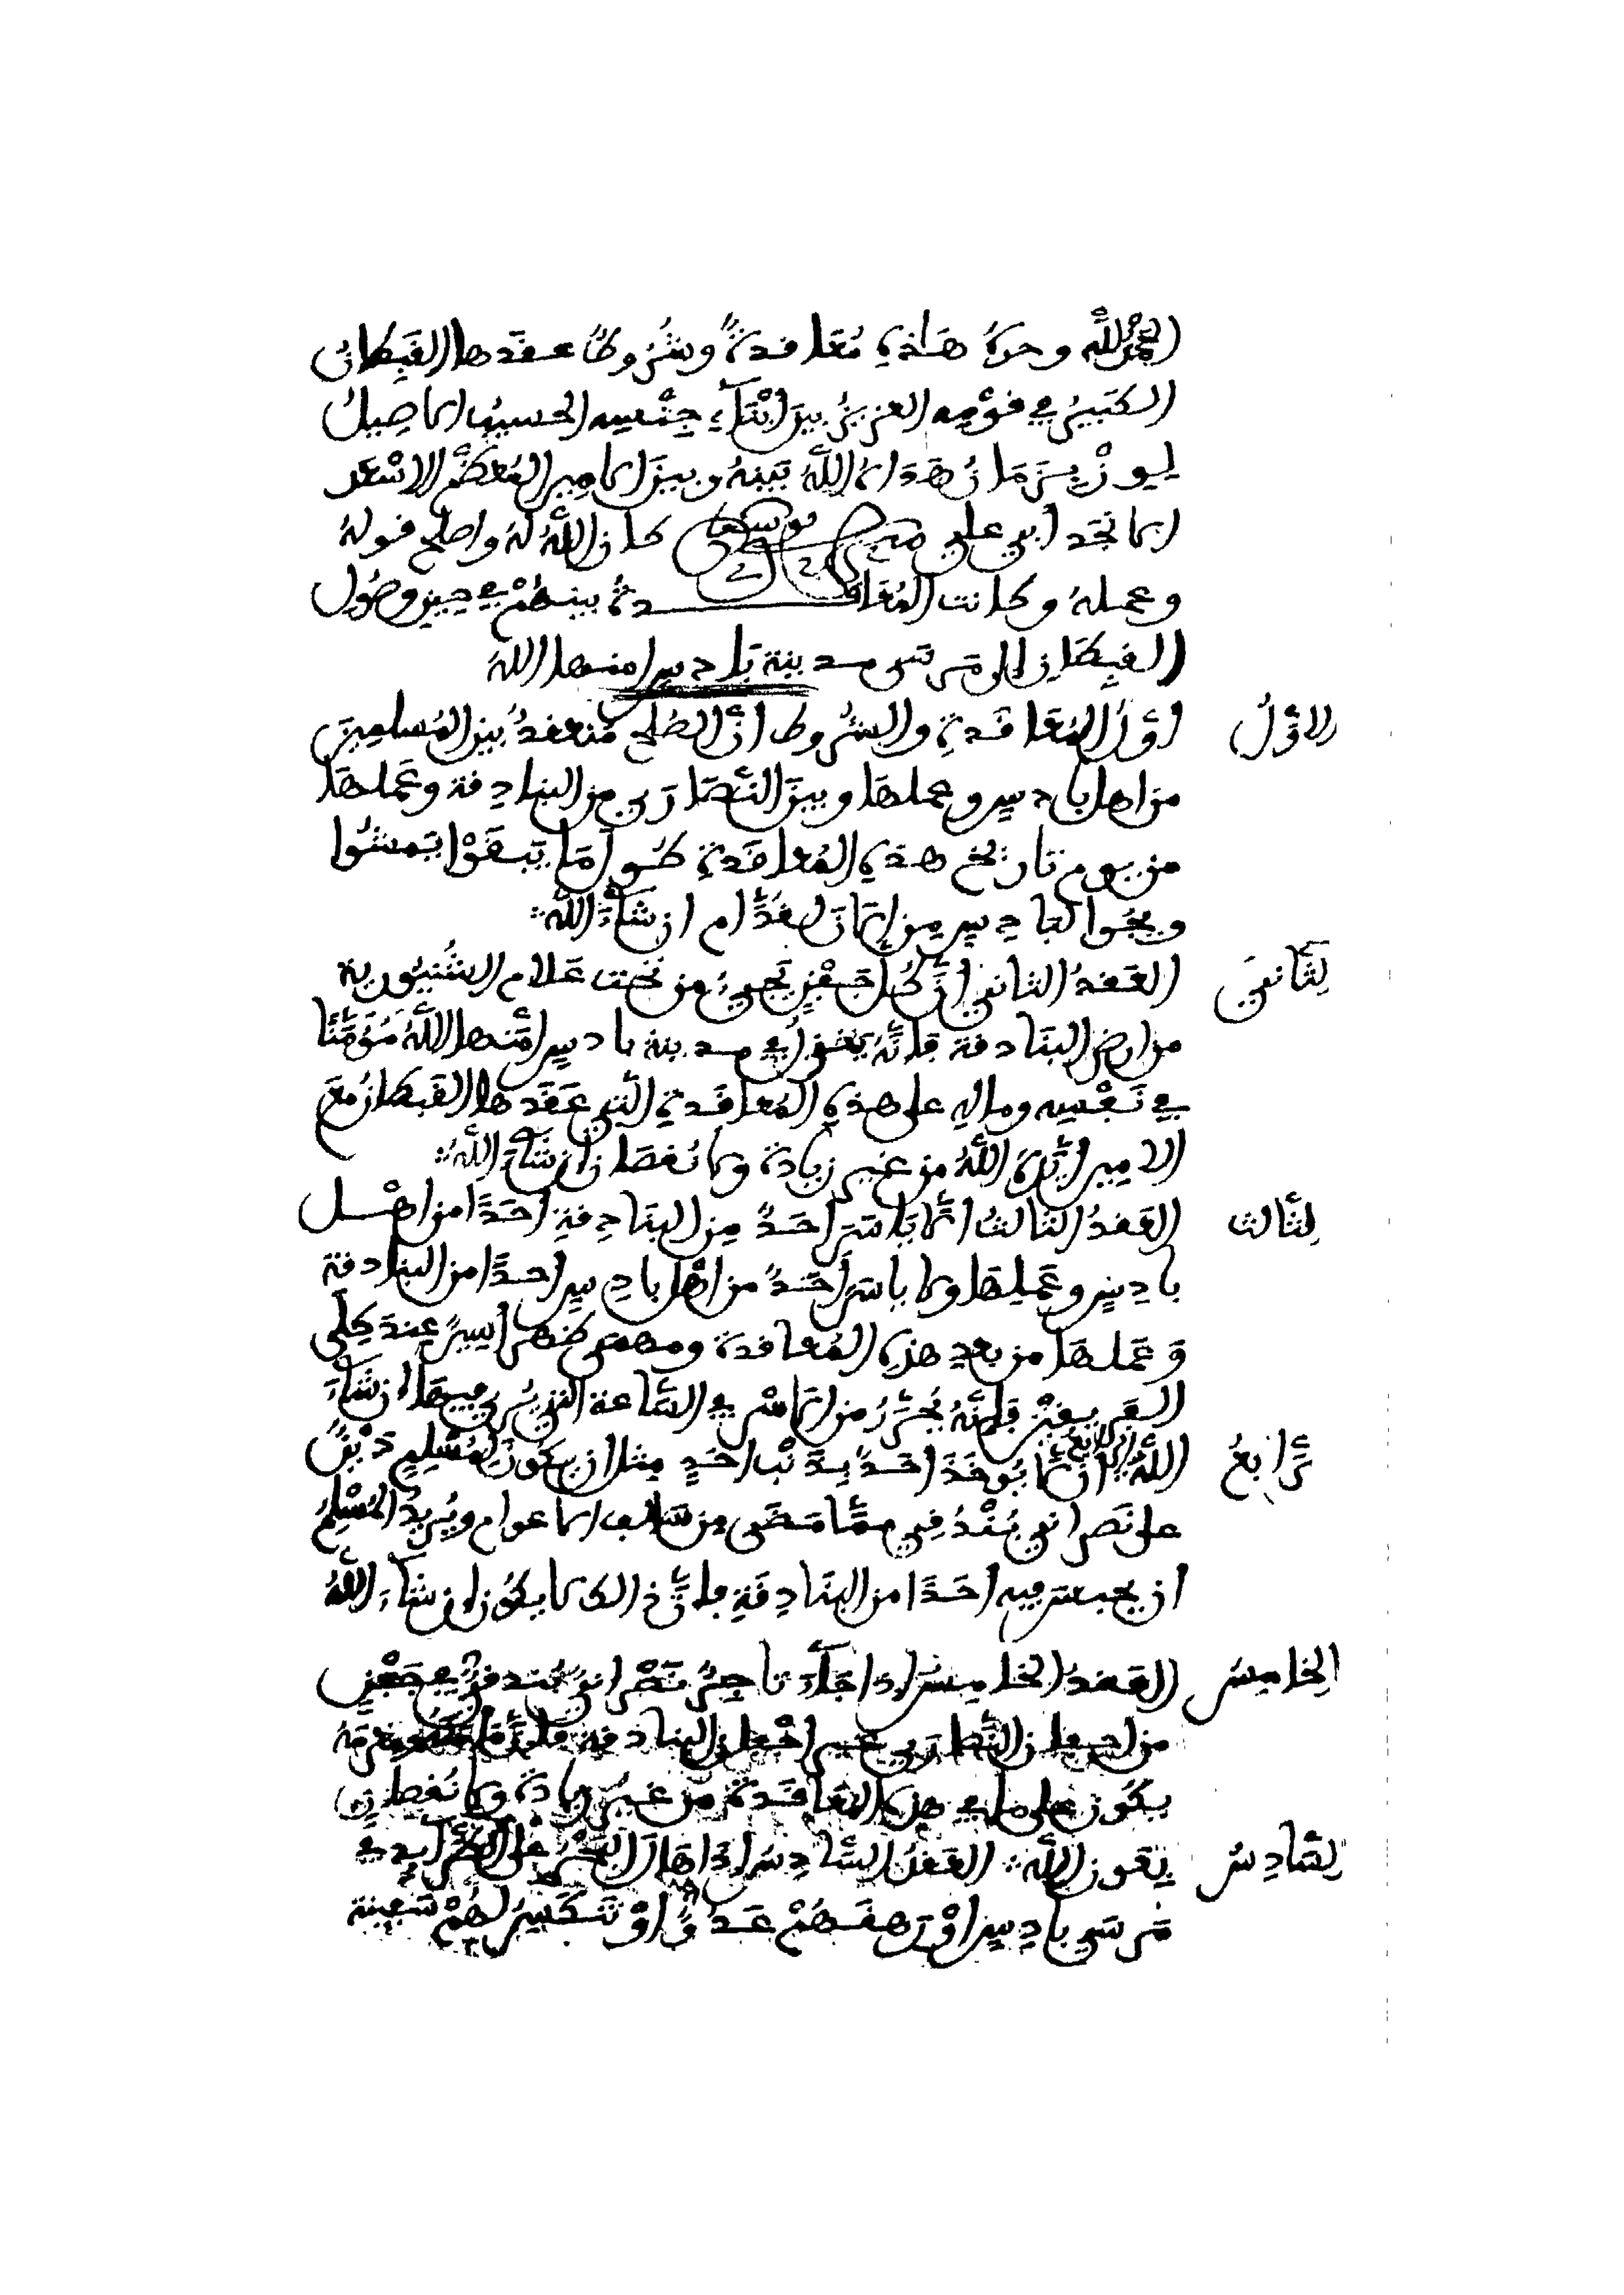 الحمد لله وحده هَاذِهِ مُعَاقدةٌ وشُرُوطٌ عقَدها القَبِطانُ
الكَبِيرُ في قوْمِه العزيزُ بيَن ابْنَآءِ جِنْسِه الحسيبُ الاصِيلُ
ليونْ هَدَاهُ اللّهُ بَينهُ وبيَن الامِير المُعظَّم الاسْعَد
ابى علي كان اللّهُ لهُ واصلح قولهُ
وعملهُ وكانت المُعَاقدةُ بينهُمْ في حِينِ وصُولِ
القبِطَان الى مَرسَى مدينة بَادِيس امنها اللّهُ
الاوَّلُ اوَّلُ المُعَاقَدةِ والشُّرُوط انَّ الصُّلحَ مُنعقدٌ بين المُسلمِينَ
من اهل بادِيسِ وعملهَا وبينَ النَّصَارَى من البنادِقة وعَملهَا
من يوم تاريخ هذهِ المُعاقَدةِ طُول مَا يَبقَوْا يَمشُوا
ويجُوا لبَادِيسِ مِن الآنَ لقُدَّام ان شَآءَ اللّهُ
الثَّانِي العَقدُ الثانِي انَّ كُل جَفْنٍ يَجِيءُ من تحت عَلام الشُّنيُورية
من ارض البنَادقة فانَّهُ يكون في مدينة بادِيسِ امَّنها اللّهُ مُؤَمَّنًا
في نَفْسِه ومالِهِ على هذهِ المُعاقَدةِ التِي عَقَدَها القَبطان مَعَ
الامِير ايَّدهُ اللّهُ من غير زيادةٍ ولا نُقصَانٍ ان شَآءَ اللّهُ
الثَّالث العَقدُ الثالثُ الَّا يَاسَرَ احَدٌ مِن البنَادِقةِ احَدًا من اهْل
بادِيسِ وعَمَلِهَا ولا ياسَرَ احَدٌ من اهْل بادِيسِ احدًا من البنادقة
وَعَملهَا من بعدِ هذِهِ المُعاقدة ومهمى ظهر اسِيرٌ عِندَ كِلَى
الفَرِيقيْن فإِنَّهُ يُحرَّرُ من الاسْرِ في السَّاعة التي يُرى فِيهَا ان شَآءَ
رَّابعُ اللّهُ الرابع انْ لا يُوخَذَ احَدٌ بِذَنْب احَدٍ مثل ان يكُونَ لِمُسْلِمٍ دَيْنٌ
على نَصرانِيٍ بُنْدُقِيٍ ممَّا مَضَى مِن سَالف الاعوام ويُرِيدُ المُسْلِمُ
ان يحبسَ فيه احَدًا من البنَادِقَةِ فانَّ ذالك لا يكُونُ ان شَآءَ اللّهُ
الخامِسُ العَقدُ الخامِسُ اذا جَآءَ تاجِرٌ نَصْرانِيٌ بُندقِيٌّ في جَفْنٍ
من اجفان النَّصَارَى غير اجْفان البنادقة
يكُون على ما في هذه المُعَاقَدةِ من غيرِ زيادةٍ ولا نُقصانٍ
السَّادِسُ بِعَون اللّه العَقدُ السَّادِسُ اذا هَالَ البَحْرُ عَلى
مَرسَى بادِيسِ اوْ رَهقَهُمْ عَدُوٌّ اوْ تَنكَسِرُ لهُمْ سَفِينة